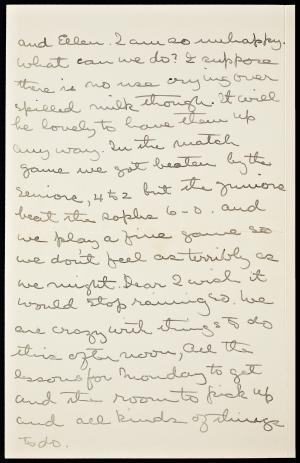 and Ellen. I am so unhappy.
What can we do? I suppose
there is no use crying over
spilled milk though. It will
be lovely to have them up
any way. In the match
game we got beaten by the
seniors, 4 to 2 but the juniors
beat the sophs 6-0. and
we play a fine game so
we don't feel as terribly as
we might. Dear I wish it
would stop raining so. We
are crazy with things to do
this afternoon, all the
lessons for Monday to get
and the room to pick up
and all kinds of things
to do.